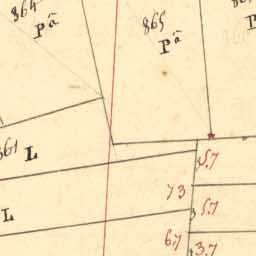 864
Pâ
865
Pâ
861 L
5.7
73
L
5.7
67
3.7